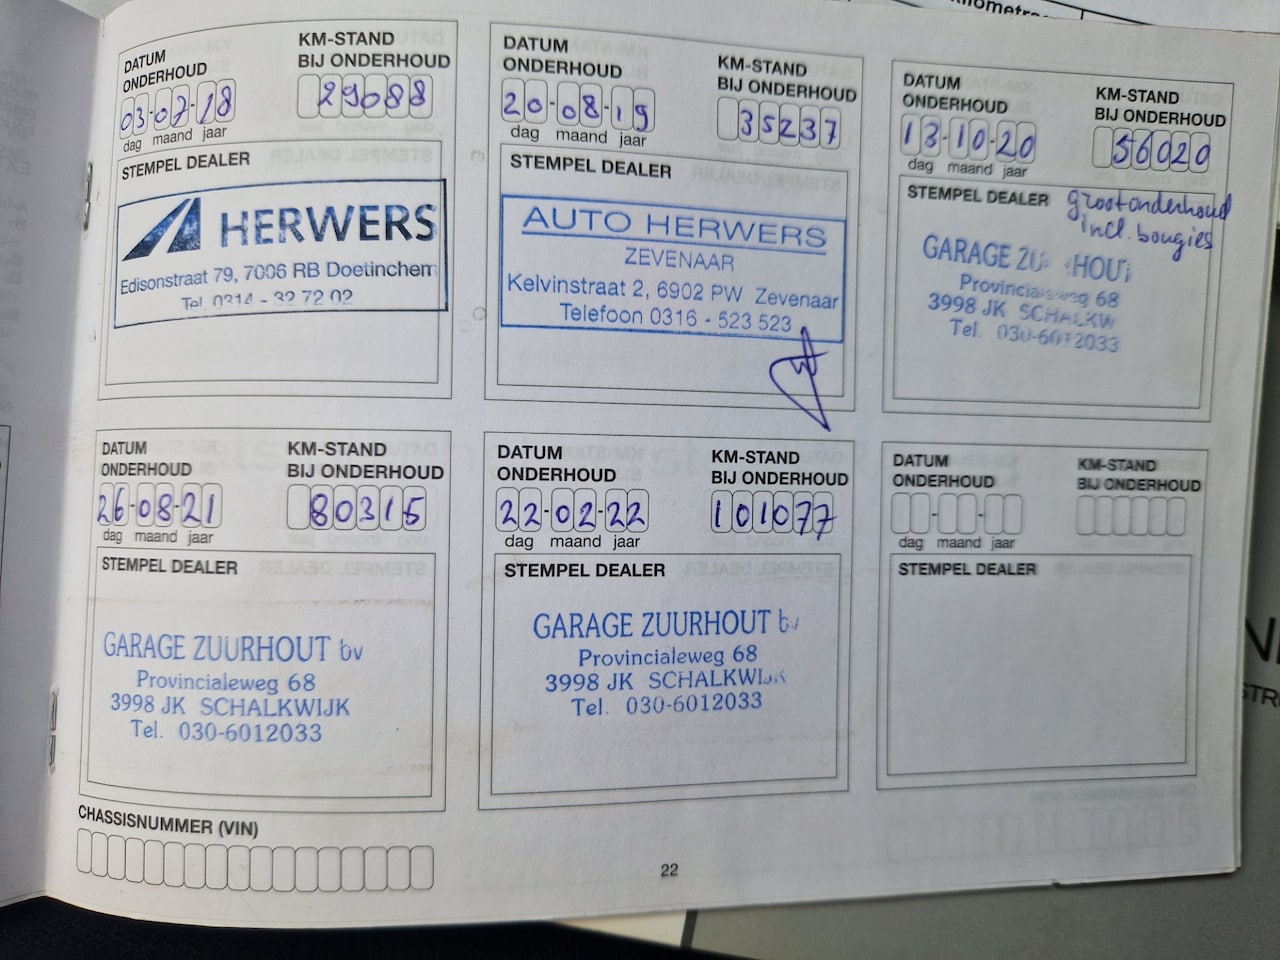 kilometra
DATUM
ONDERHOUD
KM-STAND
BIJ ONDERHOUD
03-07-18
29088
dag maand jaar
STEMPEL DEALER
HERWERS
Edisonstraat 79, 7006 RB Doetinchem
Tel. 0314 - 32 72 02
DATUM
ONDERHOUD
KM-STAND
BIJ ONDERHOUD
20-08-19
35237
dag maand jaar
STEMPEL DEALER
AUTO HERWERS
ZEVENAAR
Kelvinstraat 2, 6902 PW Zevenaar
Telefoon 0316 - 523 523
DATUM
ONDERHOUD
KM-STAND
BIJ ONDERHOUD
13-10-20
56020
dag maand jaar
STEMPEL DEALER
grootonderhoud
incl. bougies
GARAGE ZUURHOUT
Provincialeweg 68
3998 JK SCHALKW
Tel. 030-6012033
DATUM
ONDERHOUD
KM-STAND
BIJ ONDERHOUD
26-08-21
80315
dag maand jaar
STEMPEL DEALER
GARAGE ZUURHOUT bv
Provincialeweg 68
3998 JK SCHALKWIJK
Tel. 030-6012033
DATUM
ONDERHOUD
KM-STAND
BIJ ONDERHOUD
22-02-22
101077
dag maand jaar
STEMPEL DEALER
GARAGE ZUURHOUT bv
Provincialeweg 68
3998 JK SCHALKWIJK
Tel. 030-6012033
DATUM
ONDERHOUD
KM-STAND
BIJ ONDERHOUD
dag maand jaar
STEMPEL DEALER
CHASSISNUMMER (VIN)
22